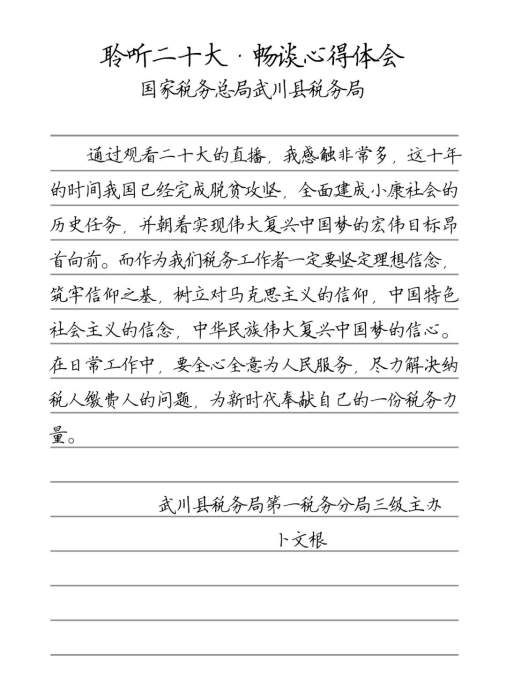 聆听二十大·畅谈心得体会
国家税务总局武川县税务局
通过观看二十大的直播，我感触非常多，这十年
的时间我国已经完成脱贫攻坚，全面建成小康社会的
历史任务，并朝着实现伟大复兴中国梦的宏伟目标昂
首向前。而作为我们税务工作者一定要坚定理想信念，
筑牢信仰之基，树立对马克思主义的信仰，中国特色
社会主义的信念，中华民族伟大复兴中国梦的信心。
在日常工作中，要全心全意为人民服务，尽力解决纳
税人缴费人的问题，为新时代奉献自己的一份税务力
量。
武川县税务局第一税务分局三级主办
卜文根